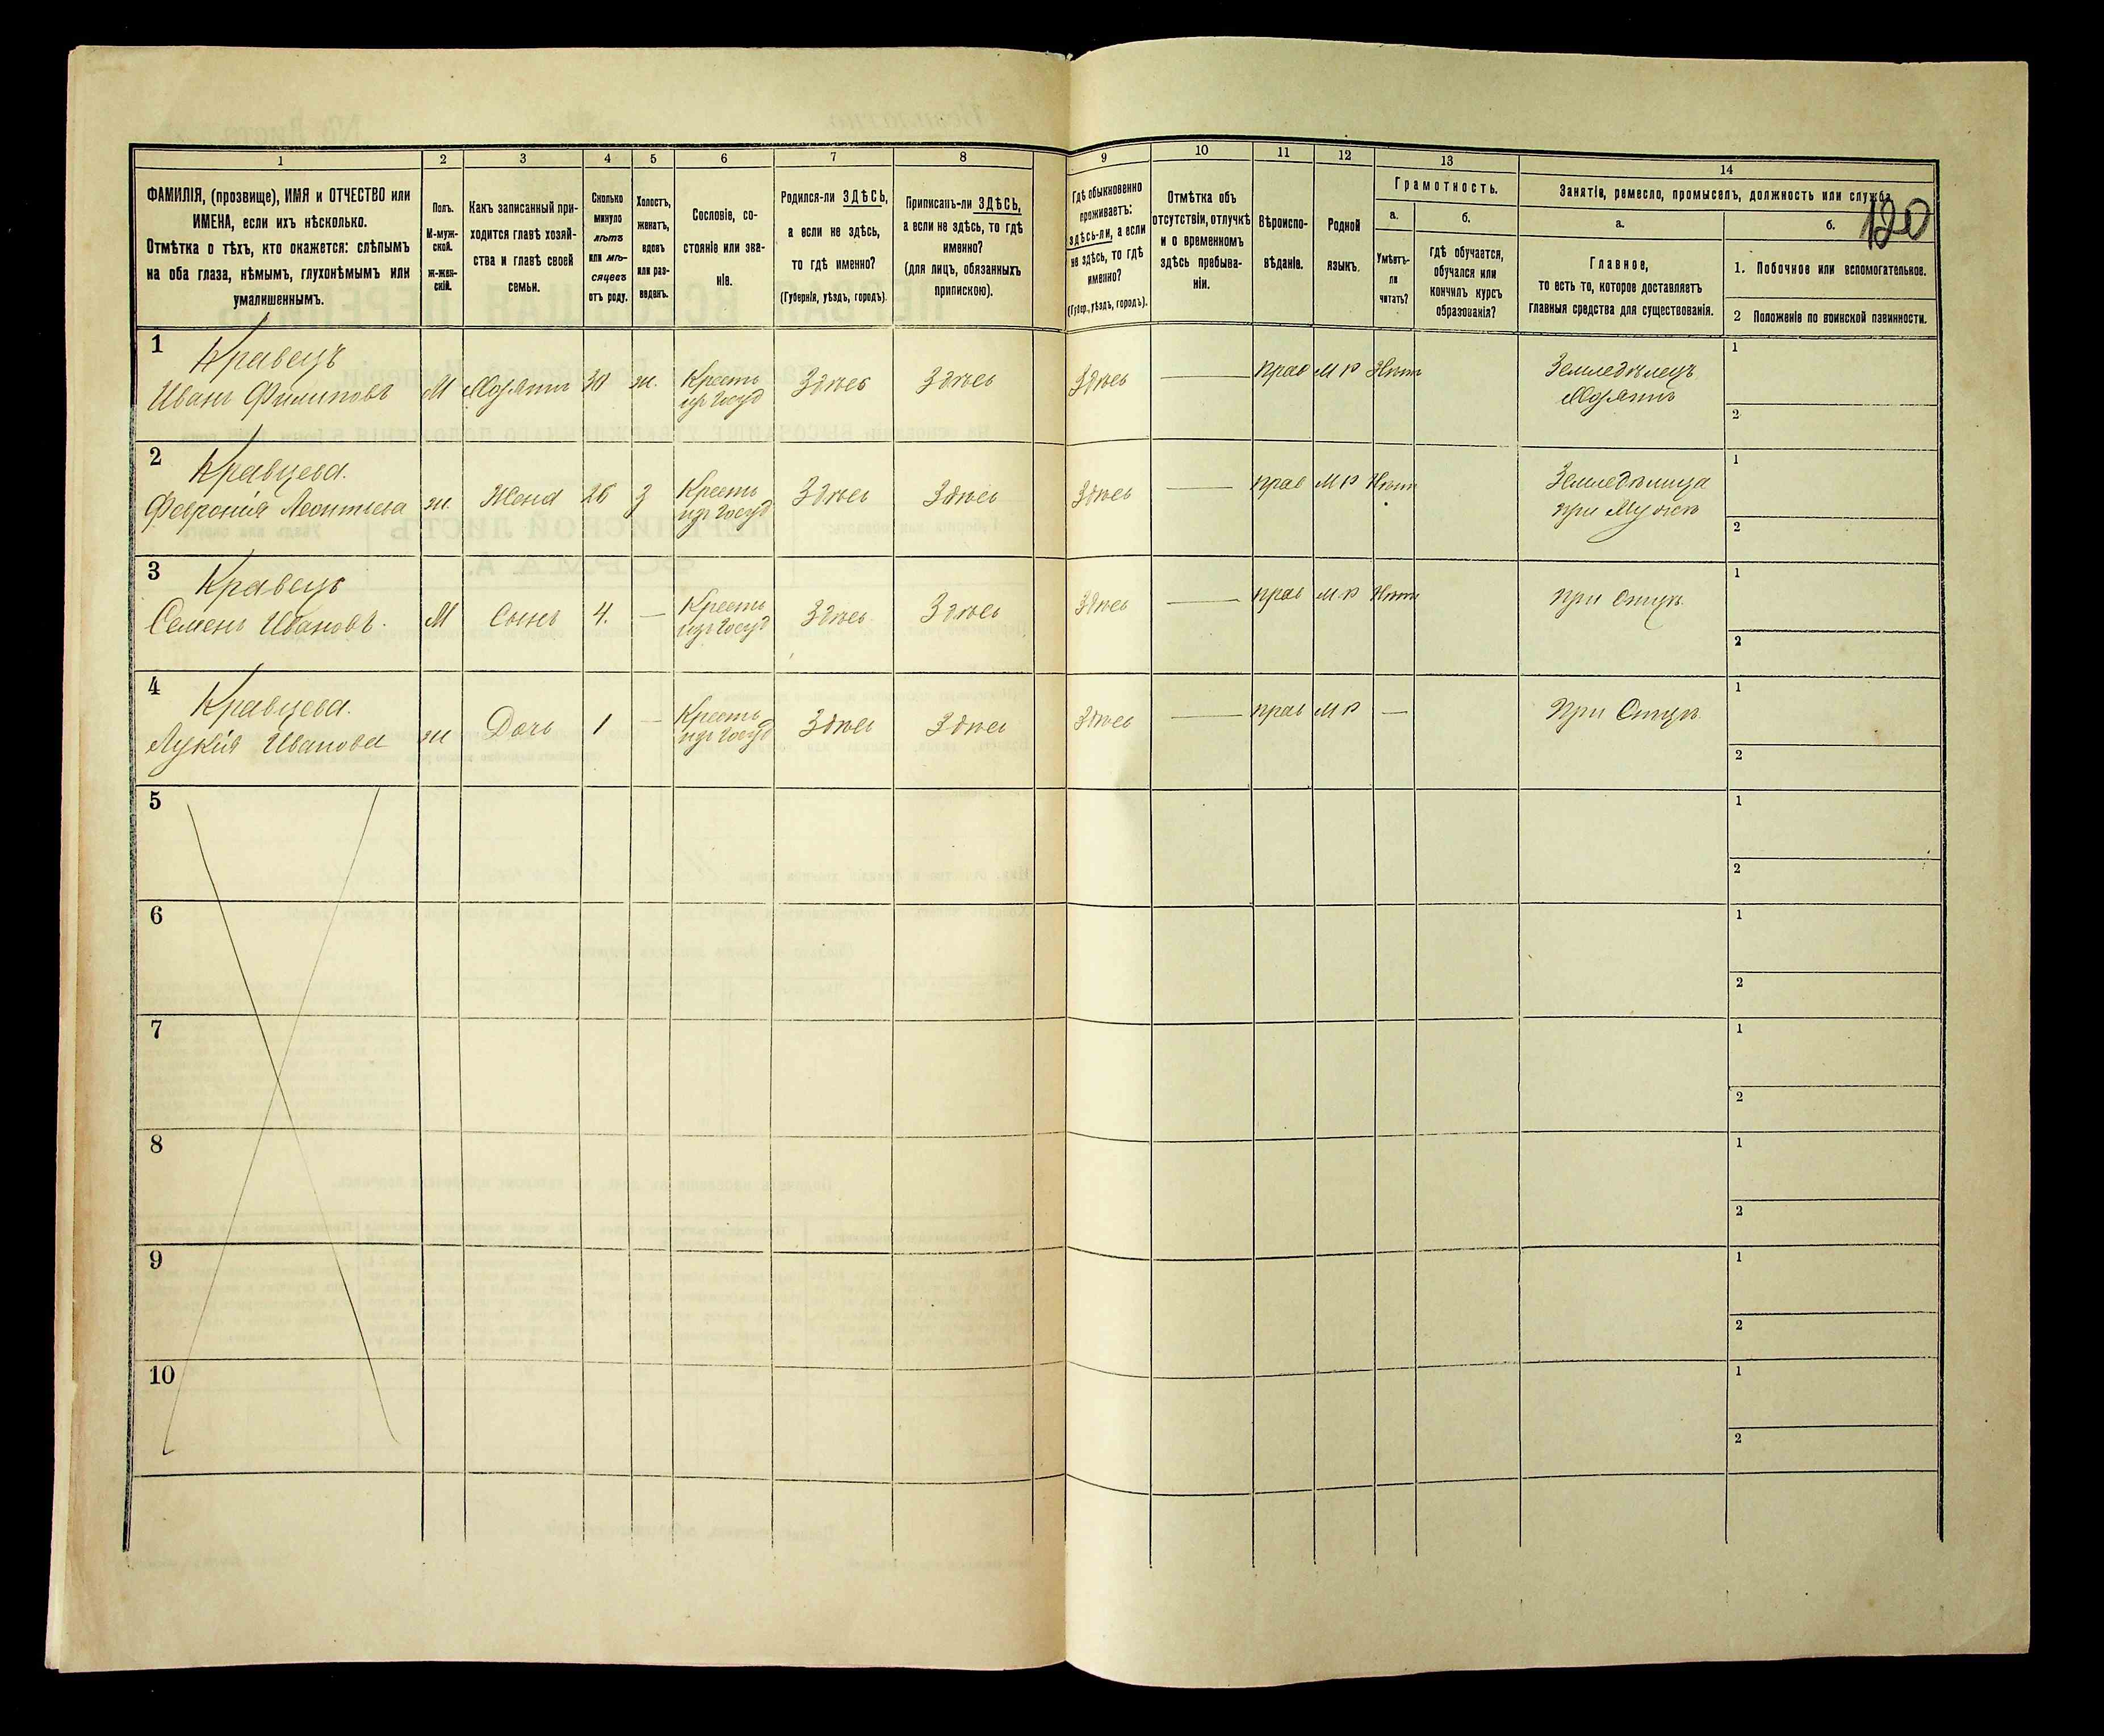 120
1 2 3 4 5 6 7 8 9 10 11 12 13 14
ФАМИЛІЯ, (прозвище), ИМЯ и ОТЧЕСТВО или
ИМЕНА, если ихъ нѣсколько.
Отмѣтка о тѣхъ, кто окажется: слѣпымъ
на оба глаза, нѣмымъ, глухонѣмымъ или
умалишеннымъ.
Полъ.
М-муж-
ской.
ж-жен-
скій.
Какъ записанный при-
ходится главѣ хозяй-
ства и главѣ своей
семьи.
Сколько
минуло
лѣтъ
или мѣ-
сяцевъ
отъ роду.
Холостъ,
женатъ,
вдовъ
или раз-
веденъ.
Сословіе, со-
стояніе или зва-
ніе.
Родился-ли ЗДѢСЬ,
а если не здѣсь,
то гдѣ именно?
(Губернія, уѣздъ, городъ).
Приписанъ-ли ЗДѢСЬ,
а если не здѣсь, то гдѣ
именно?
(для лицъ, обязанныхъ
припискою).
Гдѣ обыкновенно
проживаетъ:
здѣсь-ли, а если
не здѣсь, то гдѣ
именно?
(Губер., уѣздъ, городъ).
Отмѣтка объ
отсутствіи, отлучкѣ
и о временномъ
здѣсь пребыва-
ніи.
Вѣроиспо-
вѣданіе.
Родной
языкъ.
Грамотность.
а.
Умѣетъ-
ли
читать?
б.
Гдѣ обучается,
обучался или
кончилъ курсъ
образованія?
Занятіе, ремесло, промыселъ, должность или служба.
а.
Главное,
то есть то, которое доставляетъ
главныя средства для существованія.
б.
1. Побочное или вспомогательное.
2 Положеніе по воинской повинности.
1 Кравецъ
Иванъ Филиповъ М Хозяинъ 30 ж. Крестъ
изъ Госуд Здѣсь Здѣсь Здѣсь — прав М Р Нѣтъ Земледѣлецъ
Хозяинъ 1
2
2 Кравцева.
Февронія Леонтьева ж. Жена 26 З Крестъ
изъ Госуд Здѣсь Здѣсь Здѣсь — прав М Р Нѣтъ Земледѣлица
при Мужѣ 1
2
3 Кравецъ
Семенъ Ивановъ. М Сынъ 4. — Крестъ
изъ Госуд Здѣсь Здѣсь Здѣсь — прав М Р Нѣтъ При Отцѣ. 1
2
4 Кравцева.
Лукія Иванова ж Дочь 1 — Крестъ
изъ Госуд Здѣсь Здѣсь Здѣсь — прав М Р — При Отцѣ 1
2
5 1
2
6 1
2
7 1
2
8 1
2
9 1
2
10 1
2